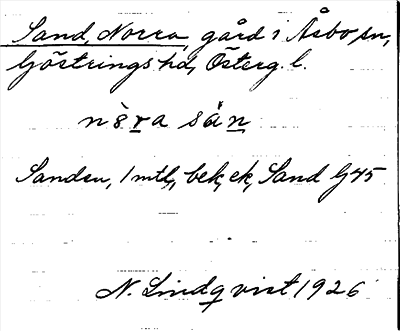 Sand, Norra, gård i Åsbo sn,
Göstrings hd, Österg. l.
nè̀ra sán
Sanden, 1 mtl, bek, ek, Sand G 45
N. Lindqvist 1926